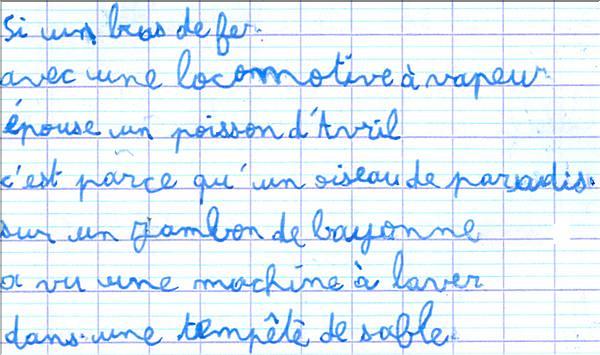 Si un bras de fer
avec une locomotive à vapeur
épouse un poisson d'Avril
c'est parce qu'un oiseau de paradis.
sur un Jambon de bayonne
a vu une machine à laver
dans une tempête de sable.